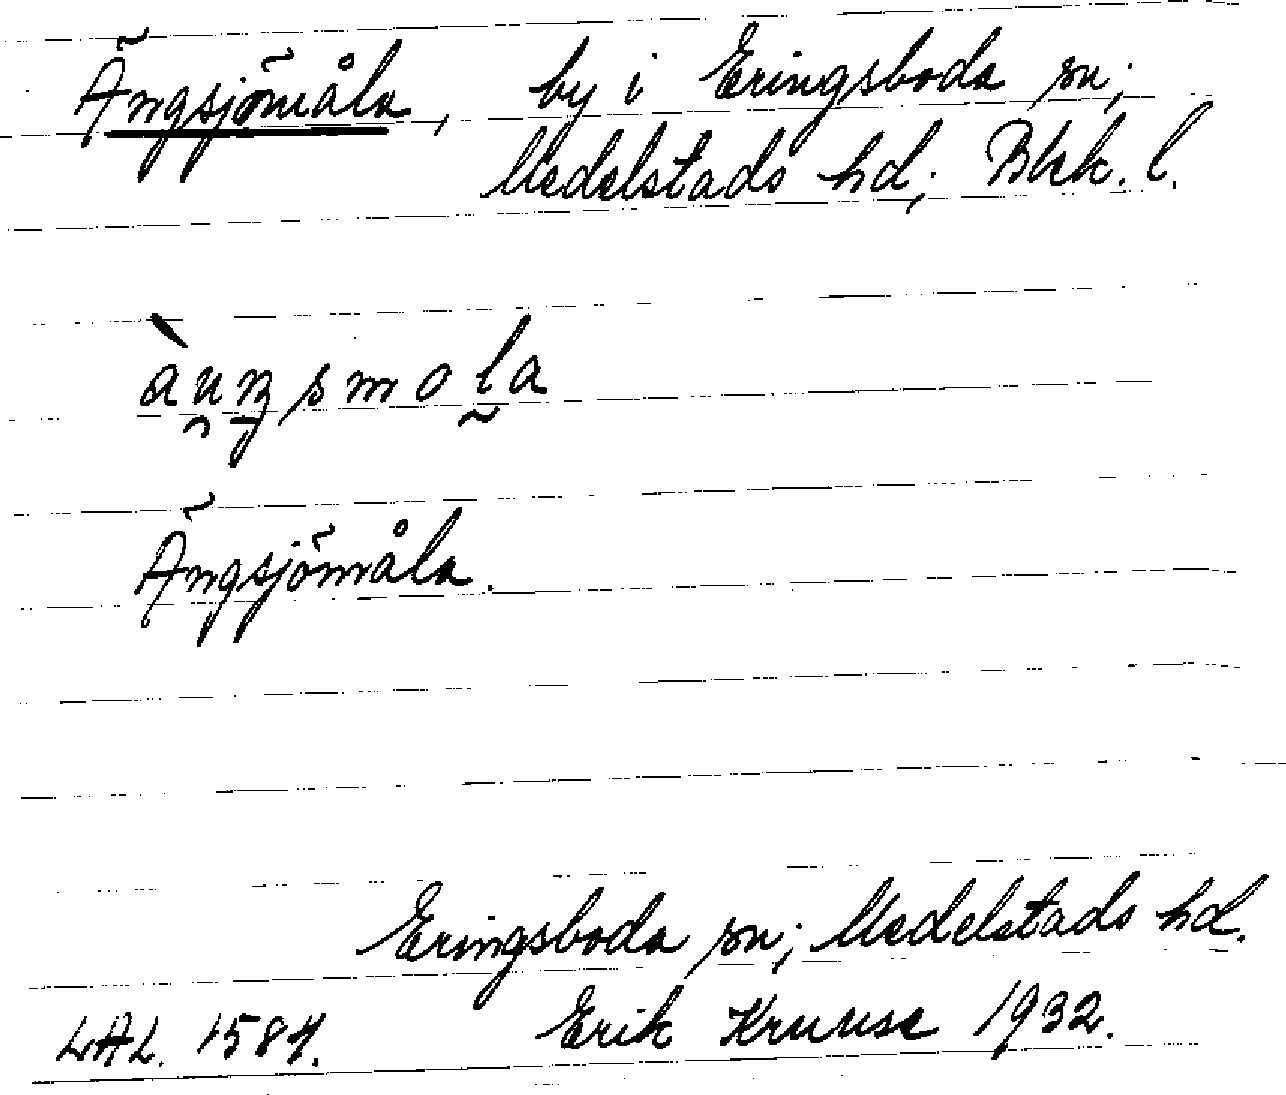 Ängsjömåla, by i Eringsboda sn;
Medelstads hd; Blek. l.
àu̯ŋsmola
Ängsjömåla.
Eringsboda sn; Medelstads hd.
LAL. 1584. Erik Kruuse 1932.